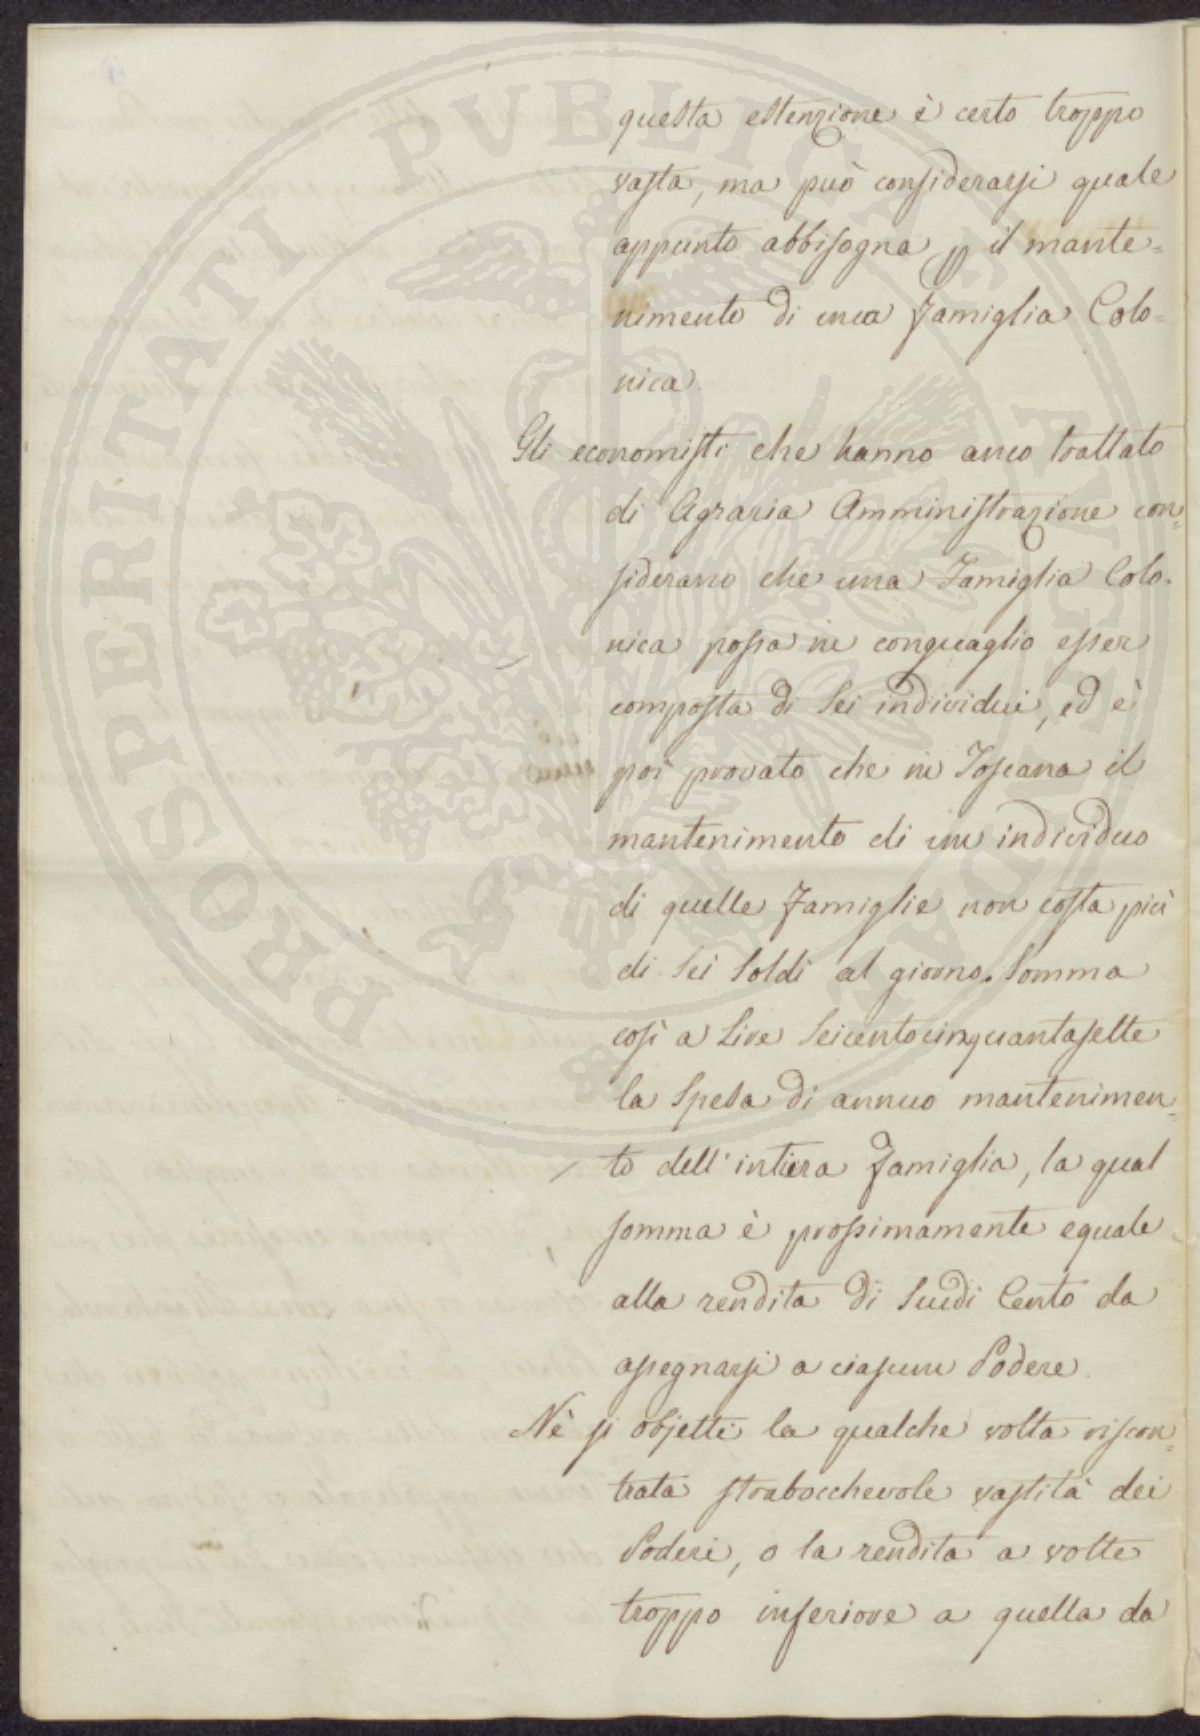 questa estenzione è certo troppo
vasta, ma può considerarsi quale
appunto abbisogna p il mante=
nimento di una famiglia Colo=
nica.
Gli economisti che hanno anco trattato
di Agraria Amministrazione con=
siderano che una Famiglia Colo=
nica possa in conguaglio esser
composta di Sei individui, ed è
poi provato che in Toscana il
mantenimento di un individuo
di quelle famiglie non costa più
di Sei Soldi al giorno. Somma
così a Lire Seicentocinquantasette
la Spesa di annuo mantenimen=
to dell'intiera famiglia, la qual
somma è prossimamente eguale
alla rendita di Scudi Cento da
assegnarsi a ciascun Podere.
Nè si objetti la qualche volta riscon=
trata strabocchevole vastità dei
Poderi, o la rendita a volte
troppo inferiore a quella da
PROSPERITATI PVBLICAE AVGENDAE